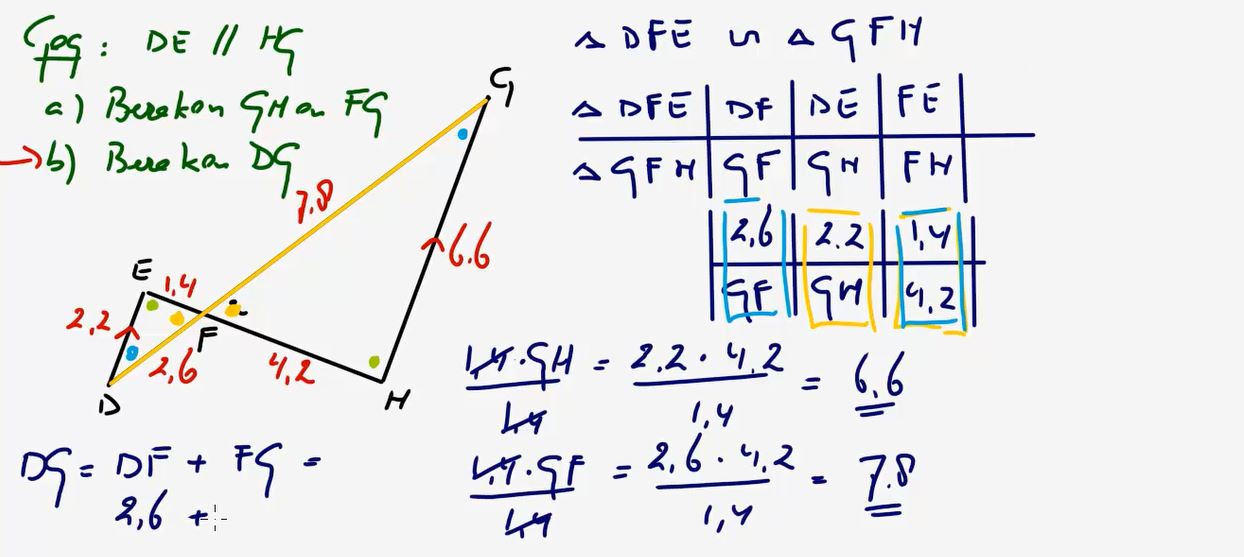 Geg: DE // HG
a) Bereken GH en FG
b) Bereken DG
G
7,8
6.6
E
1,4
2,2
F
2,6
4,2
D
H
DG = DF + FG =
2,6 +
△ DFE ∽ △ GFH
△ DFE | DF | DE | FE |
△ GFH | GF | GH | FH |
| 2,6 | 2.2 | 1,4
| GF | GH | 4,2 |
1,4 · GH = 2,2 · 4,2 = 6,6
1,4 1,4
1,4 · GF = 2,6 · 4,2 = 7.8
1,4 1,4